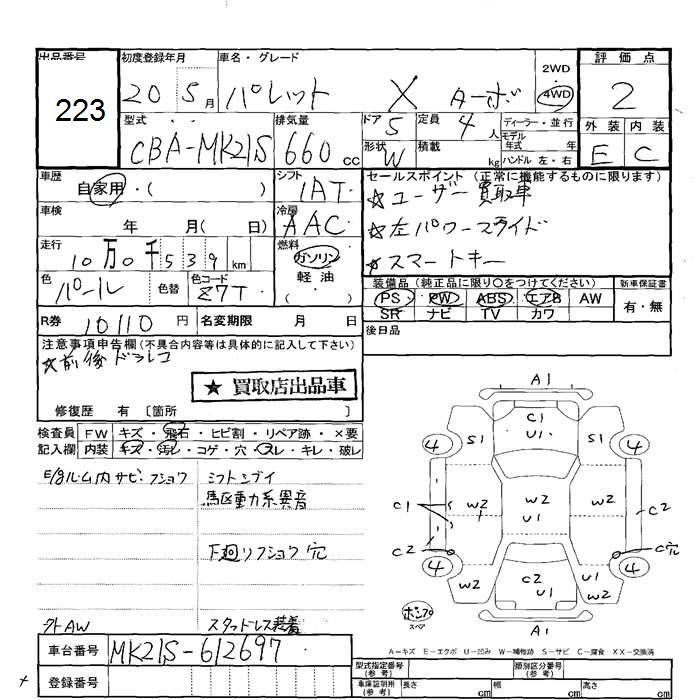 出品番号 初度登録年月 車名・グレード 2WD 評価点
223 20 5月 パレット X ターボ 4WD 2
型式 排気量 ドア 定員 ディーラー・並行 外装 内装
CBA-MK21S 660cc 5 4人 モデル年式 年 E C
形状 W 積載 kg ハンドル 左・右
車歴 自家用・( ) シフト 1AT セールスポイント (正常に機能するものに限ります)
☆ユーザー買取車
車検 年 月( 日) 冷房 AAC ☆左パワースライド
走行 10万0千539km 燃料 ガソリン 軽油 ( ) ☆スマートキー
色 パール 色替 色コード Z7T 装備品 (純正品に限り○をつけてください) 新車保証書
PS PW ABS エアB AW 有・無
SR ナビ TV カワ
R券 10110円 名変期限 月 日 後日品
注意事項申告欄(不具合内容等は具体的に記入して下さい)
☆前後ドラレコ
★ 買取店出品車
修復歴 有 〔箇所 〕
検査員 FW キズ・飛石・ヒビ割・リペア跡・×要
記入欄 内装 キズ・汚レ・コゲ・穴・スレ・キレ・破レ
E/gルーム内サビ・フショウ シフトシブイ
駆動力系異音
下廻りフショウ穴
外AW スタッドレス装着
A1
C1
U1
④ S1 S1 ④
C1 W2 W2 W2 C2
U1
C2 C穴
④ W2 C2 U1 U1 W2 ④
パンク スペア A1
A=キズ E=エクボ U=凹み W=補修跡 S=サビ C=腐食 XX=交換済
車台番号 MK21S-612697
登録番号
型式指定番号(参考) 類別区分番号(参考)
車庫証明用(参考) 長さ cm 幅 cm 高さ cm